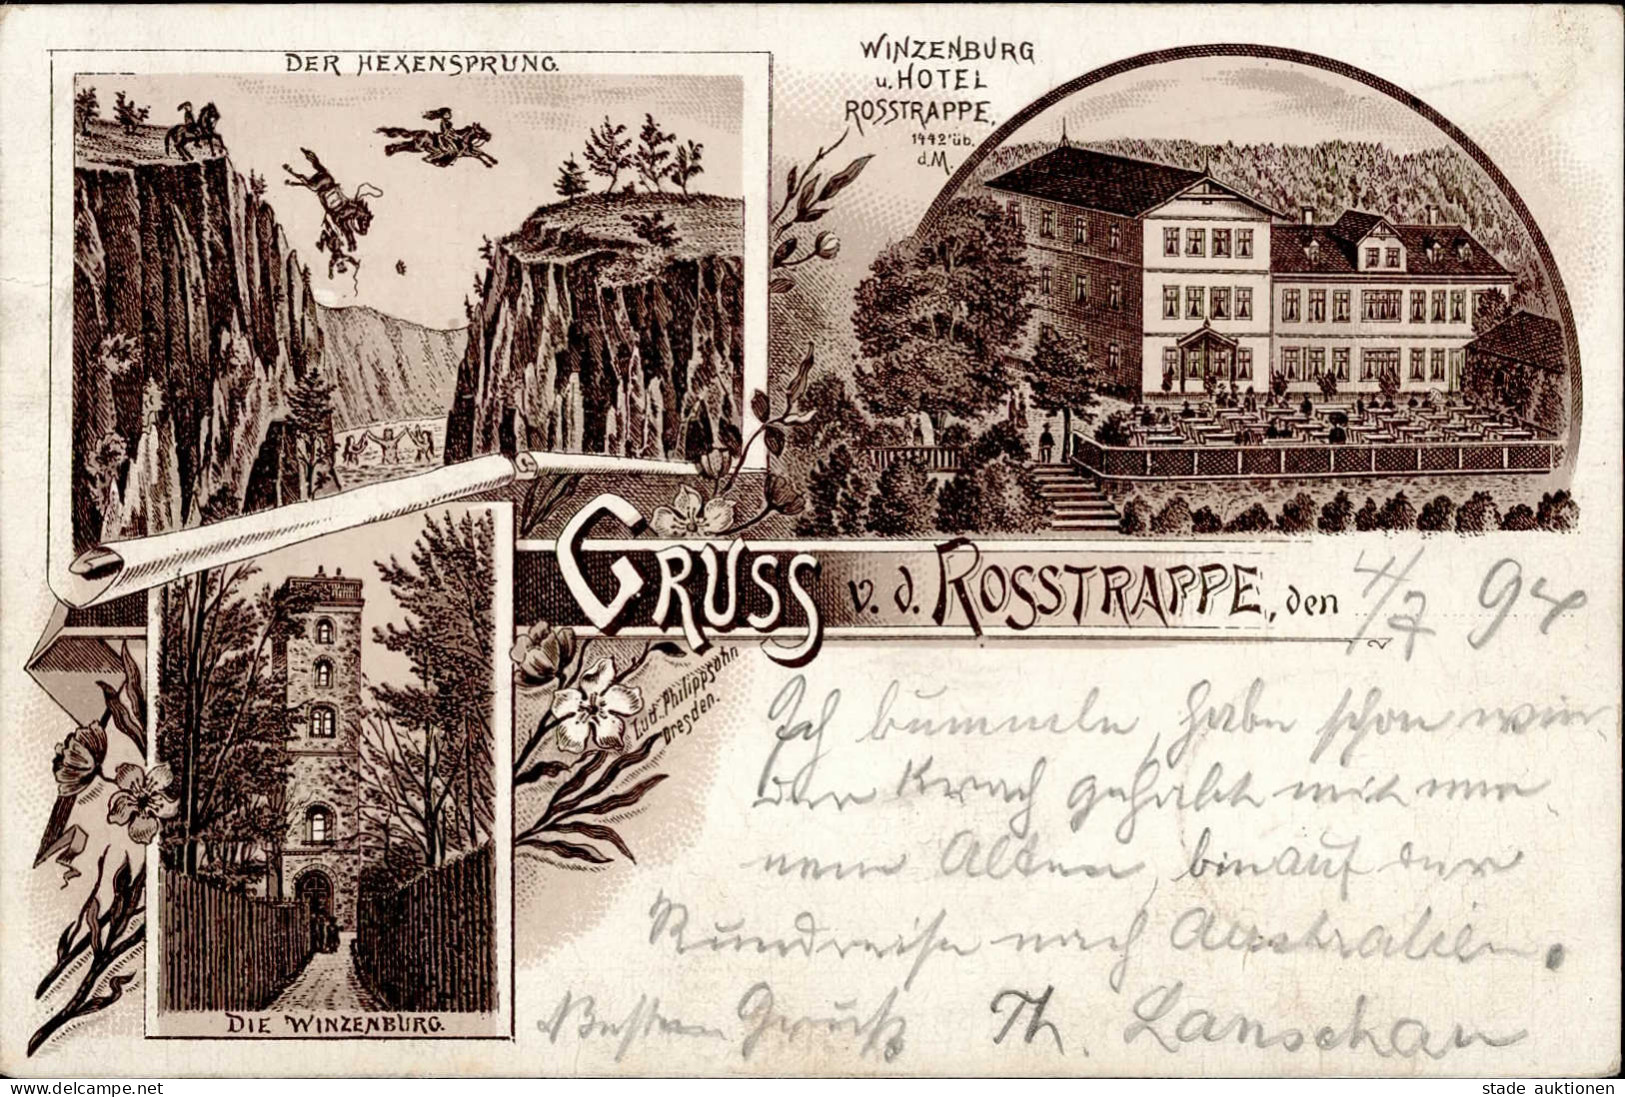 DER HEXENSPRUNG.
WINZENBURG
u. HOTEL
ROSSTRAPPE,
1442' üb.
d. M.
GRUSS v. d. ROSSTRAPPE, den 4/7 94
Lud. Philippsohn
Dresden.
Ich bummele, habe schon wie-
der Krach gehabt mit mei-
nem Alten, bin auf der
Rundreise nach Australien.
Besten Gruß Th. Lanschau
DIE WINZENBURG.
delcampe.net
stade auktionen